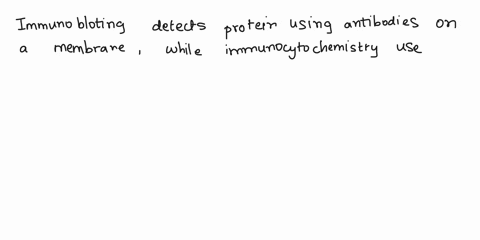 Immunobloting detects protein using antibodies on
a membrane, while immunocytochemistry use